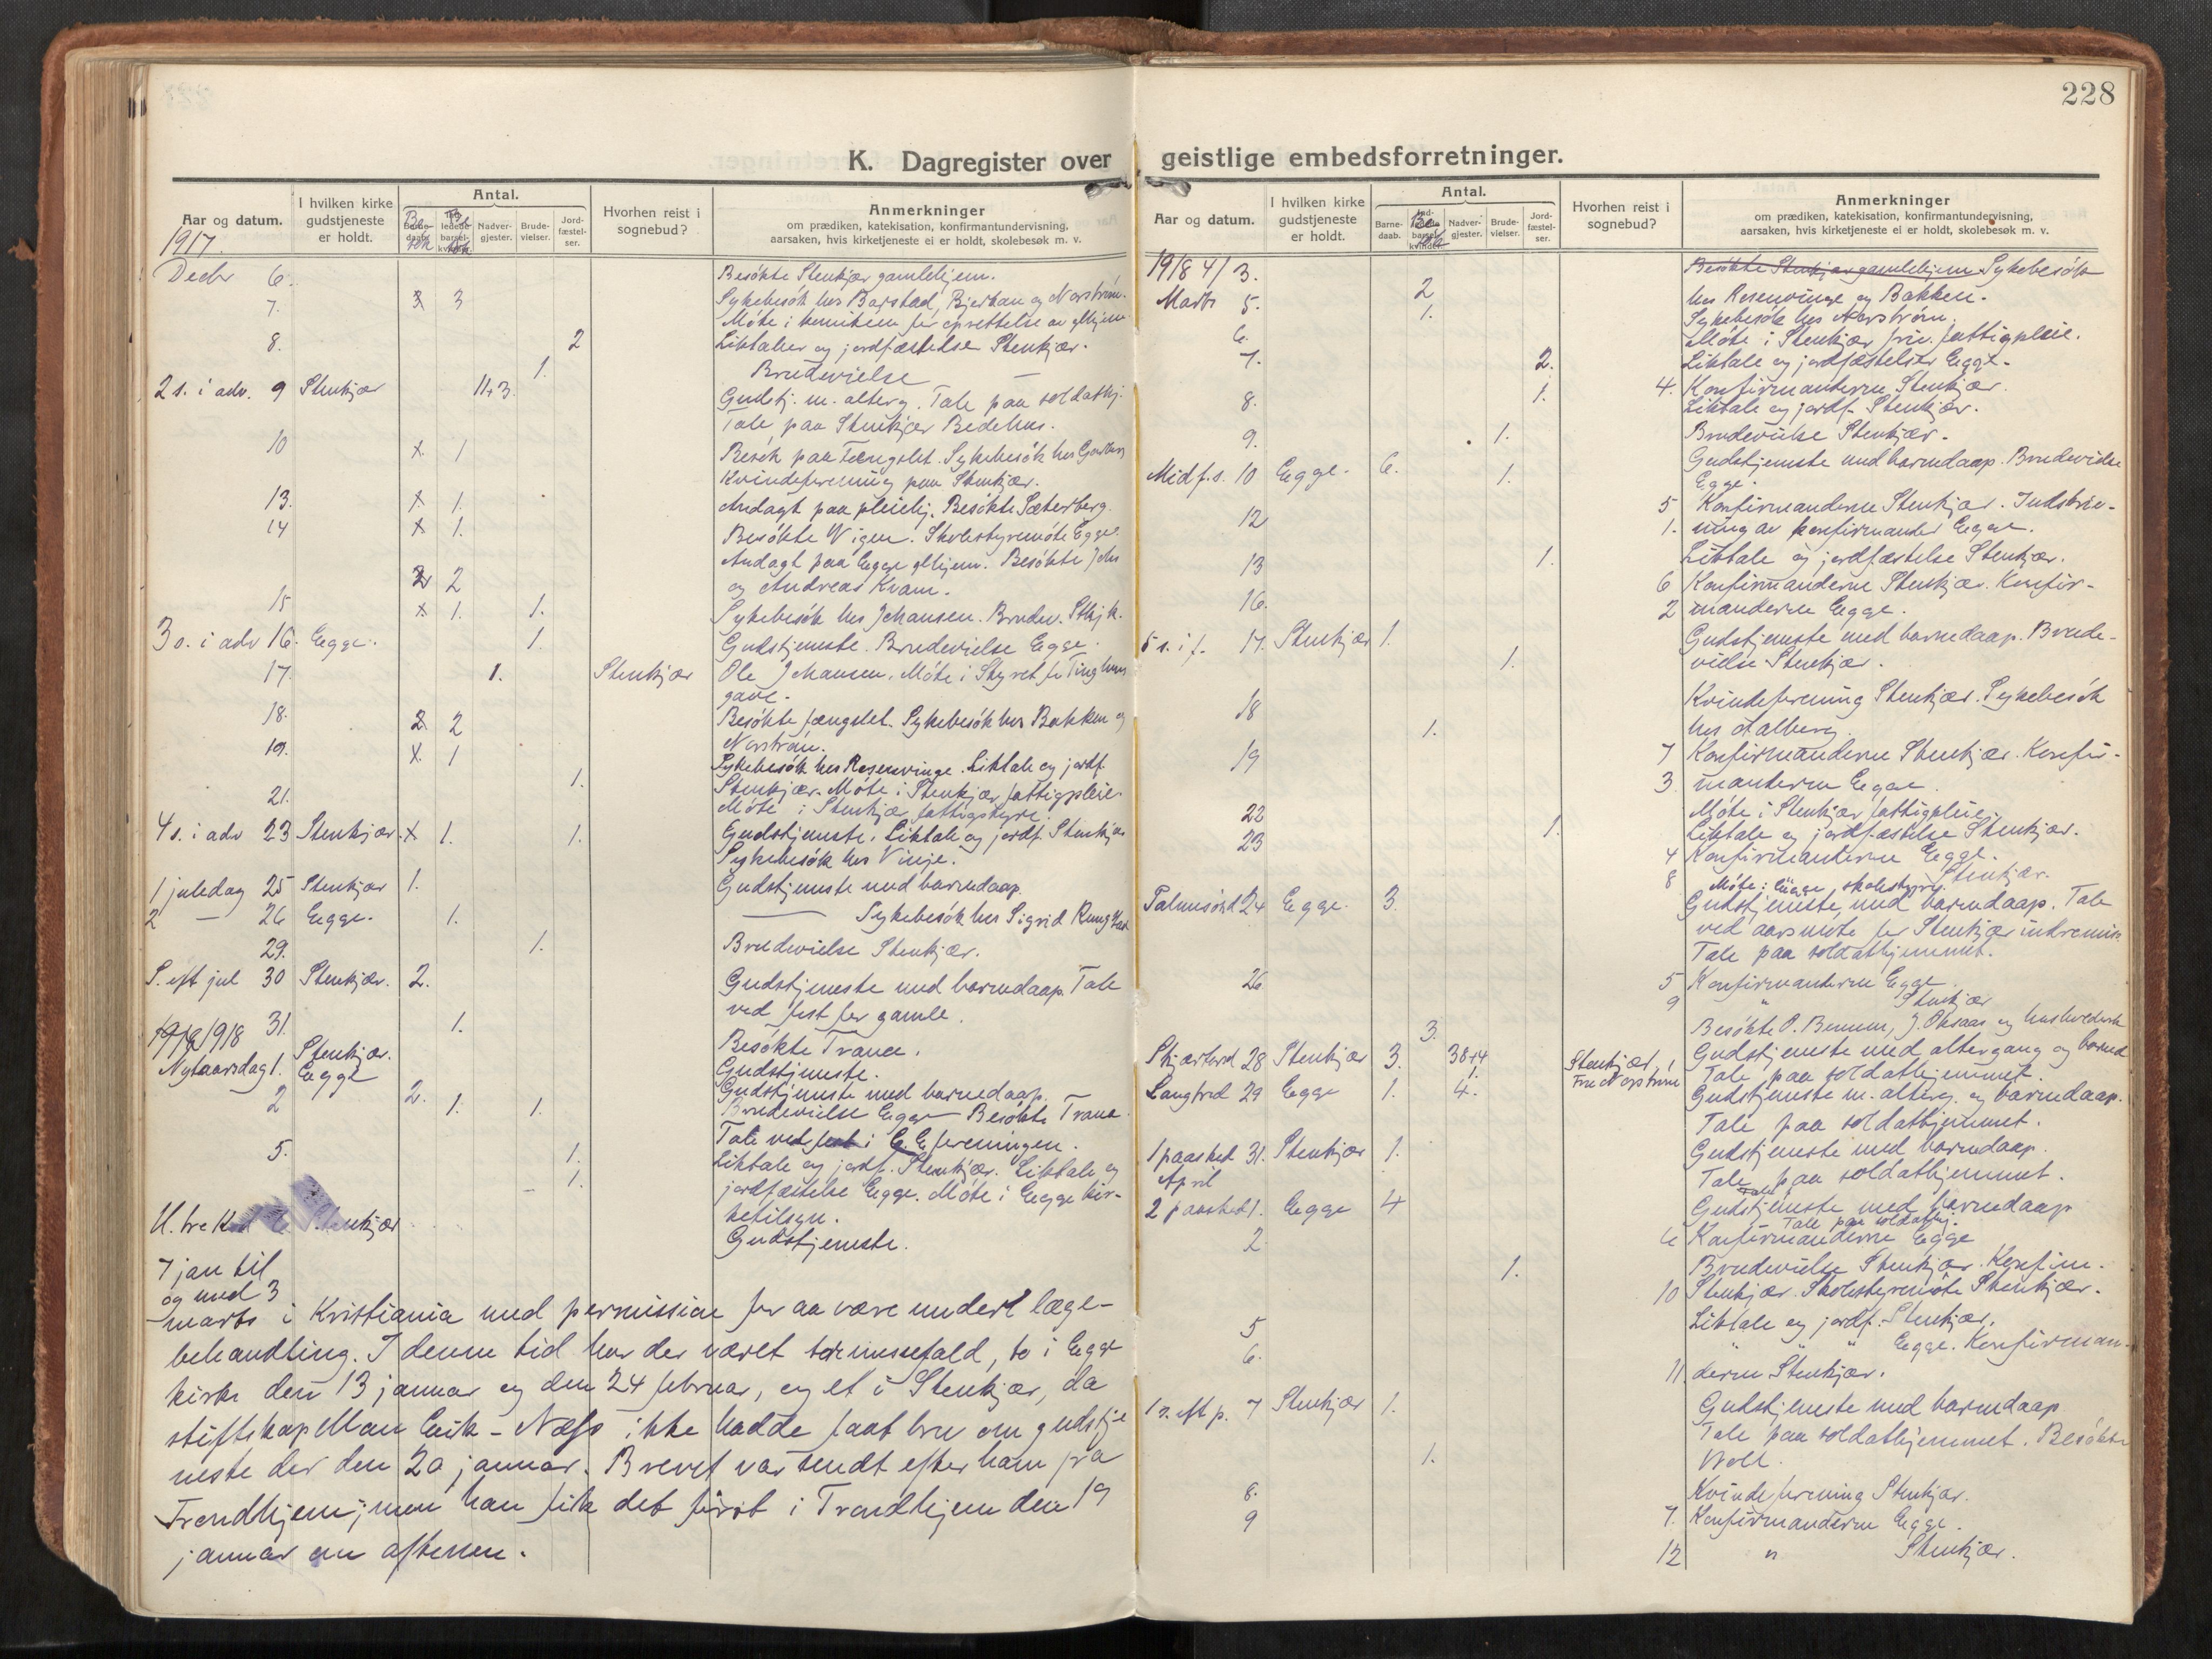 228
K. Dagregister over geistlige embedsforretninger.
Aar og datum.
I hvilken kirke gudstjeneste er holdt.
Antal.
Nadver-gjester.
Brude-vielser.
Jord-fæstel-ser.
Hvorhen reist i sognebud?
Anmerkninger
om prædiken, katekisation, konfirmantundervisning,
aarsaken, hvis kirketjeneste ei er holdt, skolebesøk m. v.
1917
Decbr 6. Besökte Stenkjær gamlehjem.
7. 3 Sykebesök hos Barstad, Bjerkan og Norström.
Möte i komiteen for oprettelse av glhjem
8. 2 Liktaler og jordfæstelse Stenkjær.
1. Brudevielse —
2 s. i adv. 9 Stenkjær 11+3 Gudstj. m. alterg. Tale paa soldathj.
Tale paa Stenkjær Bedehus.
10 x 1 Besök paa Fængslet. Sykebesök hos
Kvindeforening paa Stenkjær.
13. x 1. Andagt paa pleiehj. Besökte Sæterberg.
14 x 1. Besökte Wigen. Skolestyremöte Egge.
Andagt paa Egge glhjem. Besökte Johs
2 2 og Andreas Kvam.
15 x 1. 1. Sykebesök hos Johansen. Brudev. Stkj k.
3 s. i adv 16. Egge. 1. Gudstjeneste. Brudevielse Egge.
17. 1. Stenkjær Ole Johansen. Möte i Styret for Tinghus
gave.
18. 2. 2 Besökte fængslet. Sykebesök hos Bakken og
Norström.
19. x. 1 Sykebesök hos Rosenvinge. Liktale og jordf.
1. Stenkjær. Möte i Stenkjær fattigpleie.
21. Möte i Stenkjær fattigstyre.
4 s. i adv 23 Stenkjær. x 1. 1. Gudstjeneste. Liktale og jordf. Stenkjær
Sykebesök hos Vinje.
1 juledag 25 Stenkjær 1. Gudstjeneste med barnedaap.
2 — 26 Egge. 1. — Sykebesök hos Sigrid
29. 1. Brudevielse Stenkjær.
S. eft jul 30 Stenkjær. 2. Gudstjeneste med barnedaap. Tale
ved fest for gamle.
31. 1. Besökte Trana.
1918 Stenkjær. Gudstjeneste.
Nytaarsdag 1. Egge 2. Gudstjeneste med barnedaap.
2 1. 1. Brudevielse Egge Besökte Trana.
Tale ved fest i foreningen.
5. 1. Liktale og jordf. Stenkjær. Liktale og
1. jordfæstelse Egge. Möte i Egge kir-
ketilsyn.
H. tre Stenkjær Gudstjeneste.
7 jan til
og med 3
marts i Kristiania med permission for aa være under læge-
behandling. I denne tid har der været tre messefald, to i Egge
kirke den 13 januar og den 24 februar, og et i Stenkjær, da
stiftskapellan Eeik-Næss ikke hadde faat brev om gudstje
neste der den 20 januar. Brevet var sendt efter ham fra
Trondhjem; men han fik det først i Trondhjem den 19
januar om aftenen.
Aar og datum.
I hvilken kirke gudstjeneste er holdt.
Antal.
Barne-daab.
Nadver-gjester.
Brude-vielser.
Jord-fæstel-ser.
Hvorhen reist i sognebud?
Anmerkninger
om prædiken, katekisation, konfirmantundervisning,
aarsaken, hvis kirketjeneste ei er holdt, skolebesøk m. v.
1918 4/3. Besökte Stenkjær gamlehjem Sykebesök
2 hos Rosenvinge og Bakken.
Marts 5. 1. Sykebesök hos Norström.
6. Möte i Stenkjær fattigpleie.
7. 2. Liktale og jordfæstelser Egge.
4. Konfirmanterne Stenkjær.
8. 1. Liktale og jordf. Stenkjær.
9. 1. Brudevielse Stenkjær.
Midf.s. 10 Egge. 6. 1. Gudstjeneste med barnedaap. Brudevielse
Egge.
12 5 Konfirmanderne Stenkjær. Indskriv-
1. ning av konfirmander Egge.
13 1. Liktale og jordfæstelse Stenkjær.
16. 6 Konfirmanderne Stenkjær. Konfir-
2 manderne Egge.
5 s. i f. 17. Stenkjær 1. Gudstjeneste med barnedaap. Brude-
1. vielse Stenkjær.
18 Kvindeforening Stenkjær. Sykebesök
1. hos Aalberg.
19 7 Konfirmanderne Stenkjær. Konfir-
3. manderne Egge.
22 Möte i Stenkjær fattigpleie.
23 1. Liktale og jordfæstelse Stenkjær.
4 Konfirmanterne Egge.
8 Stenkjær.
Möte i Egge skolestyre.
Palmesönd 24 Egge. 3. Gudstjeneste med barnedaap. Tale
ved aarsmöte for Stenkjær indremis.
Tale paa soldathjemmet.
26 5 Konfirmanterne Egge.
9 " Stenkjær
3. Besökte
Skjærtorsd 28 Stenkjær 3. 38+4 Stenkjær, Gudstjeneste med altergang og barned
1. Fru Norström Tale paa soldathjemmet.
Langfred 29 Egge 1. 4. Gudstjeneste m. alterg. og barnedaap.
Tale paa soldathjemmet.
1 paasked 31. Stenkjær 1. Gudstjeneste med barnedaap.
April Tale paa soldathjemmet.
2 paasked 1. Egge 4 Gudstjeneste med barnedaap
Tale paa soldathj.
2 Konfirmanderne Egge
1. Brudevielse Stenkjær. Konfirm.
10 Stenkjær. Skolestyremöte Stenkjær.
5 Liktale og jordf. Stenkjær.
6. " " " Egge. Konfirman-
11 derne Stenkjær.
1 s. eft p. 7 Stenkjær 1. Gudstjeneste med barnedaap
Tale paa soldathjemmet. Besökte
1. Woll.
8. Kvindeforening Stenkjær.
9 7. Konfirmanderne Egge.
12 " Stenkjær.